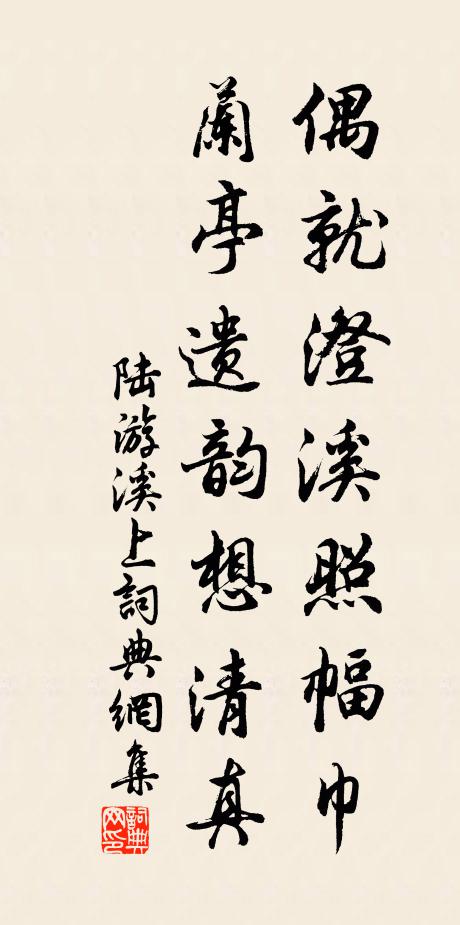 偶就澄溪照幅巾
蘭亭遺韵想清真
陆游溪上詞典網集
詞典网印